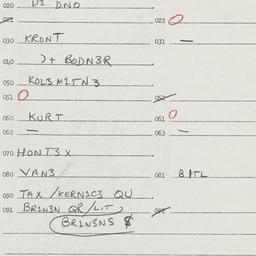 020 DNO
021
022 O
030 KRONT
031 —
040 )+ BODN3R
050 KOL3M1TN3
051 O
052
060 KURT
061 O
062 —
063 —
070 HONT3X
080 VAN3
081 B1TL
090 TAX /KERN1C3 QU
091 BR1N3N QR/LIT)
092
BR1N3NS $